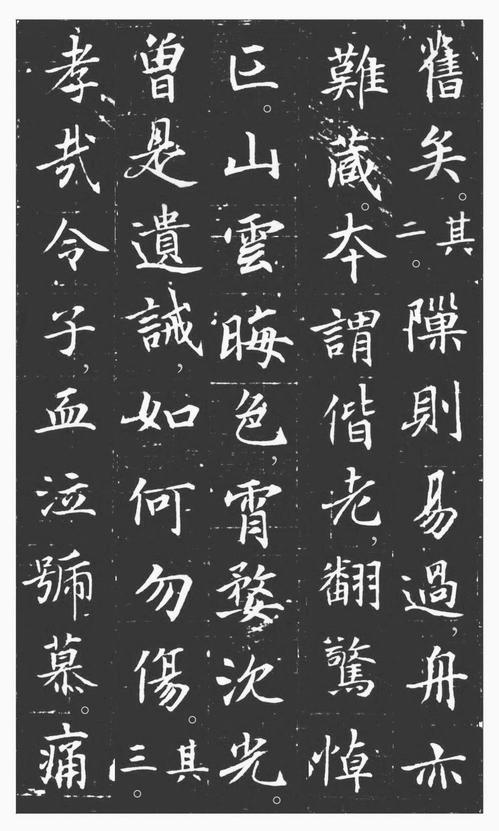 舊矣。其二。隟則易過，舟亦
難藏。夲謂偕老，翻驚悼
亡。山雲晦色，宵婺沈光。
曾是遺誡，如何勿傷。其三。
孝哉令子，血泣號慕。痛